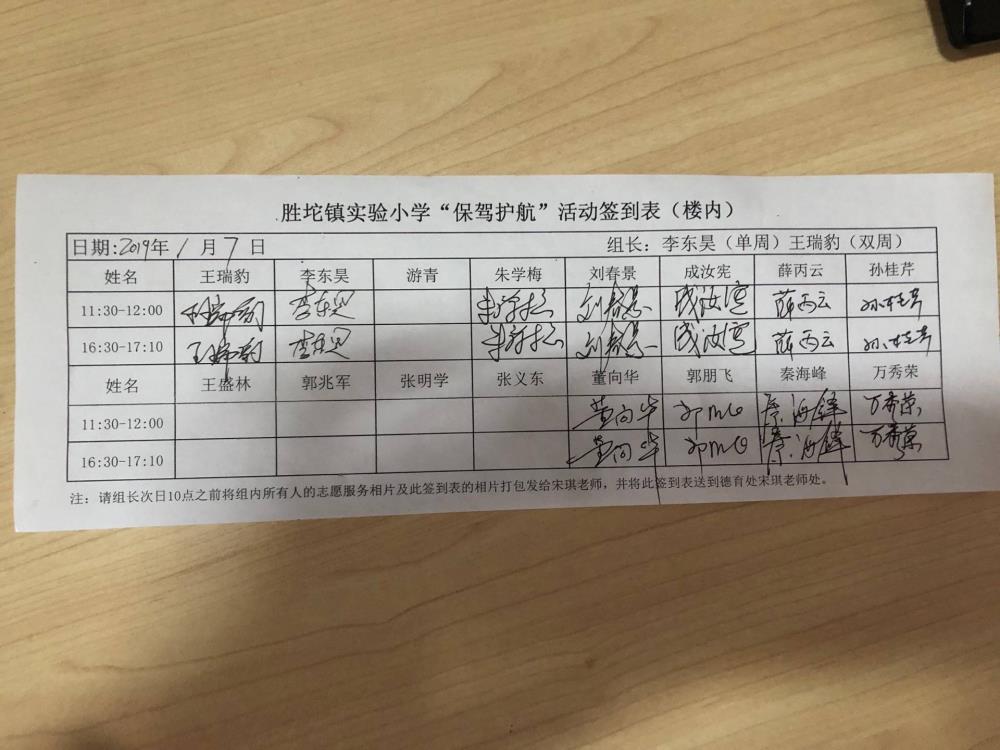 胜坨镇实验小学“保驾护航”活动签到表（楼内）
日期:2019年1月7日 组长：李东昊（单周）王瑞豹（双周）
姓名 王瑞豹 李东昊 游青 朱学梅 刘春景 成汝宪 薛丙云 孙桂芹
11:30-12:00 王瑞豹 李东昊 朱学梅 刘春景 成汝宪 薛丙云 孙桂芹
16:30-17:10 王瑞豹 李东昊 朱学梅 刘春景 成汝宪 薛丙云 孙桂芹
姓名 王盛林 郭兆军 张明学 张义东 董向华 郭朋飞 秦海峰 万秀荣
11:30-12:00 董向华 秦海峰 万秀荣
16:30-17:10 董向华 秦海峰 万秀荣
注：请组长次日10点之前将组内所有人的志愿服务相片及此签到表的相片打包发给宋琪老师，并将此签到表送到德育处宋琪老师处。